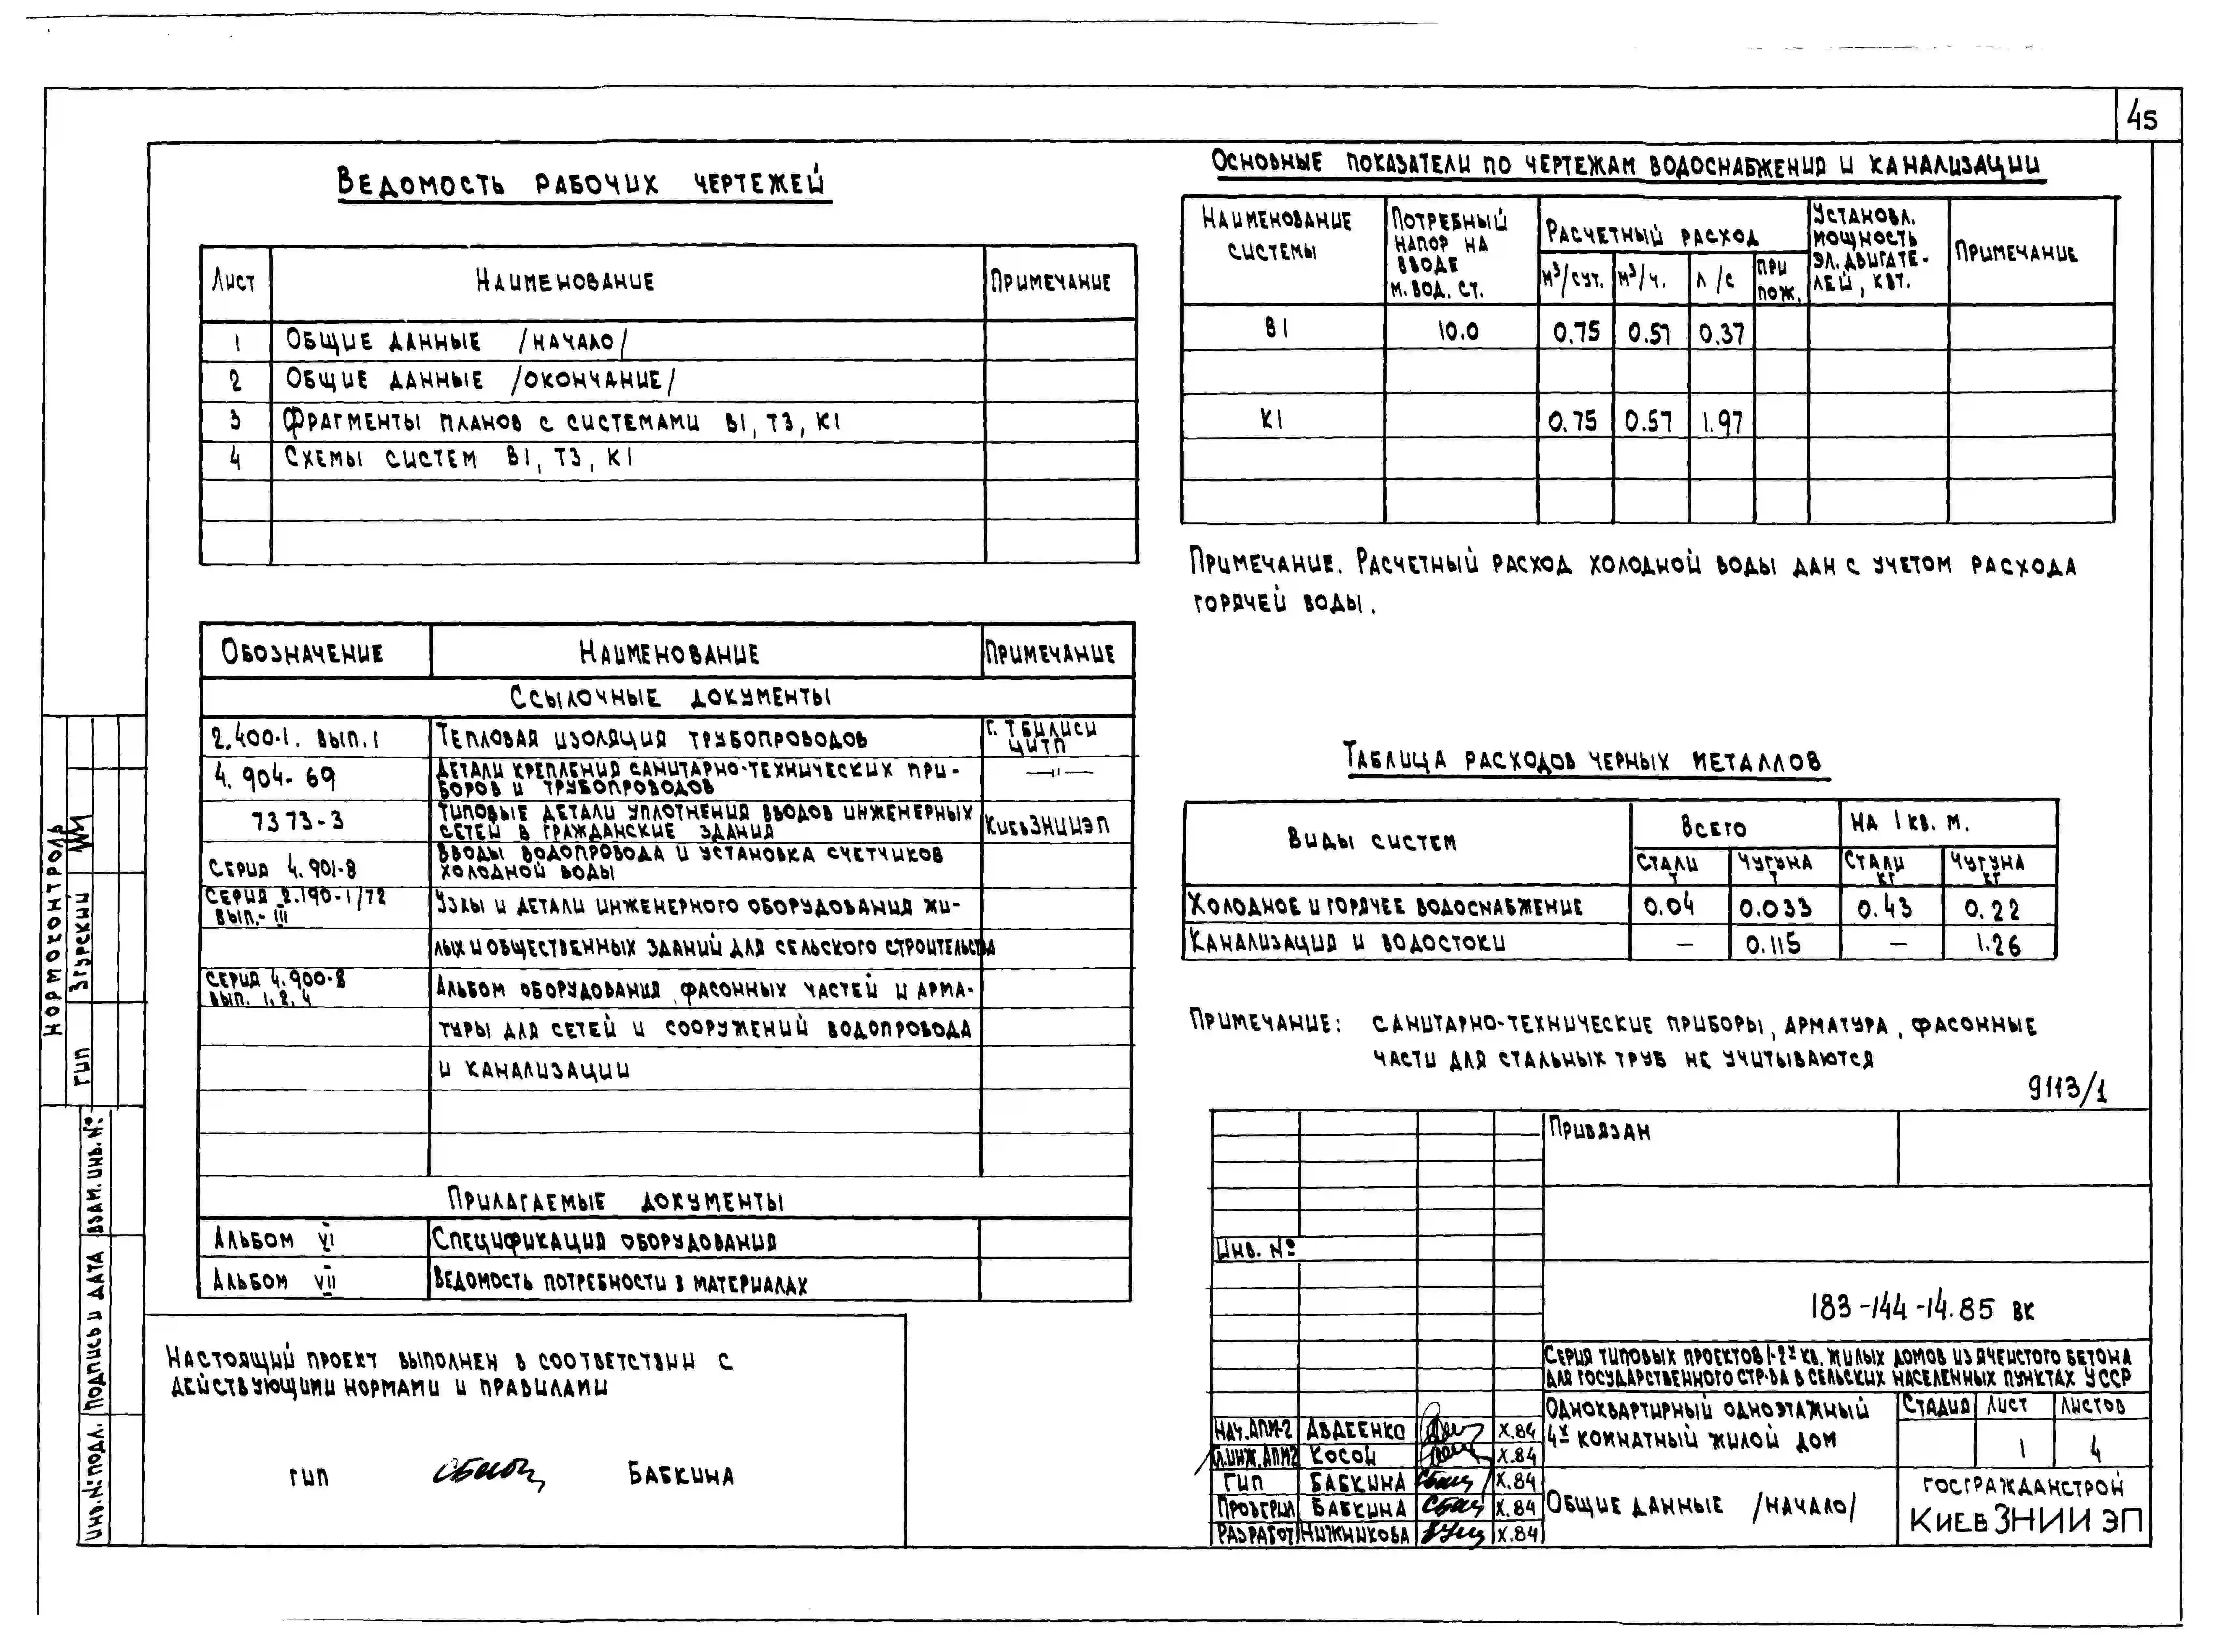 45
Ведомость рабочих чертежей
Лист Наименование Примечание
1 Общие данные /начало/
2 Общие данные /окончание/
3 Фрагменты планов с системами В1, Т3, К1
4 Схемы систем В1, Т3, К1
Обозначение Наименование Примечание
Ссылочные документы
2.400-1. вып. 1 Тепловая изоляция трубопроводов г. Тбилиси ЦИТП
4.904-69 Детали крепления санитарно-технических при-
боров и трубопроводов —"—
7373-3 Типовые детали уплотнения вводов инженерных
сетей в гражданские здания КиевЗНИИЭП
Серия 4.901-8 Вводы водопровода и установка счетчиков
холодной воды
Серия 2.190-1/72
вып.- III Узлы и детали инженерного оборудования жи-
лых и общественных зданий для сельского строительства
Серия 4.900-8
вып. 1, 2, 4 Альбом оборудования, фасонных частей и арма-
туры для сетей и сооружений водопровода
и канализации
Прилагаемые документы
Альбом VI Спецификация оборудования
Альбом VII Ведомость потребности в материалах
Настоящий проект выполнен в соответствии с
действующими нормами и правилами
ГИП Бабкина
Основные показатели по чертежам водоснабжения и канализации
Наименование системы
Потребный напор на вводе м. вод. ст.
Расчетный расход
м³/сут. м³/ч. л/с при пож.
Установл. мощность эл. двигате-
лей, квт.
Примечание
В1 10.0 0.75 0.57 0.37
К1 0.75 0.57 1.97
Примечание. Расчетный расход холодной воды дан с учетом расхода
горячей воды.
Таблица расходов черных металлов
Виды систем Всего на 1 кв. м.
Стали т Чугуна т Стали кг Чугуна кг
Холодное и горячее водоснабжение 0.04 0.033 0.43 0.22
Канализация и водостоки — 0.115 — 1.26
Примечание: санитарно-технические приборы, арматура, фасонные
части для стальных труб не учитываются
9113/1
Привязан
Инв. №
183-144-14.85 ВК
Серия типовых проектов 1-2х кв. жилых домов из ячеистого бетона
для государственного стр-ва в сельских населенных пунктах УССР
Нач. АПМ-2 Авдеенко X.84
Гл.инж.АПМ2 Косой X.84
ГИП Бабкина X.84
Проверил Бабкина X.84
Разработ Нижникова X.84
Одноквартирный одноэтажный
4х комнатный жилой дом
Стадия Лист Листов
1 4
Общие данные /начало/
Госгражданстрой
КиевЗНИИЭП
Нормоконтроль
ГИП Згурский
Инв. № подл. Подпись и дата Взам. инв. №